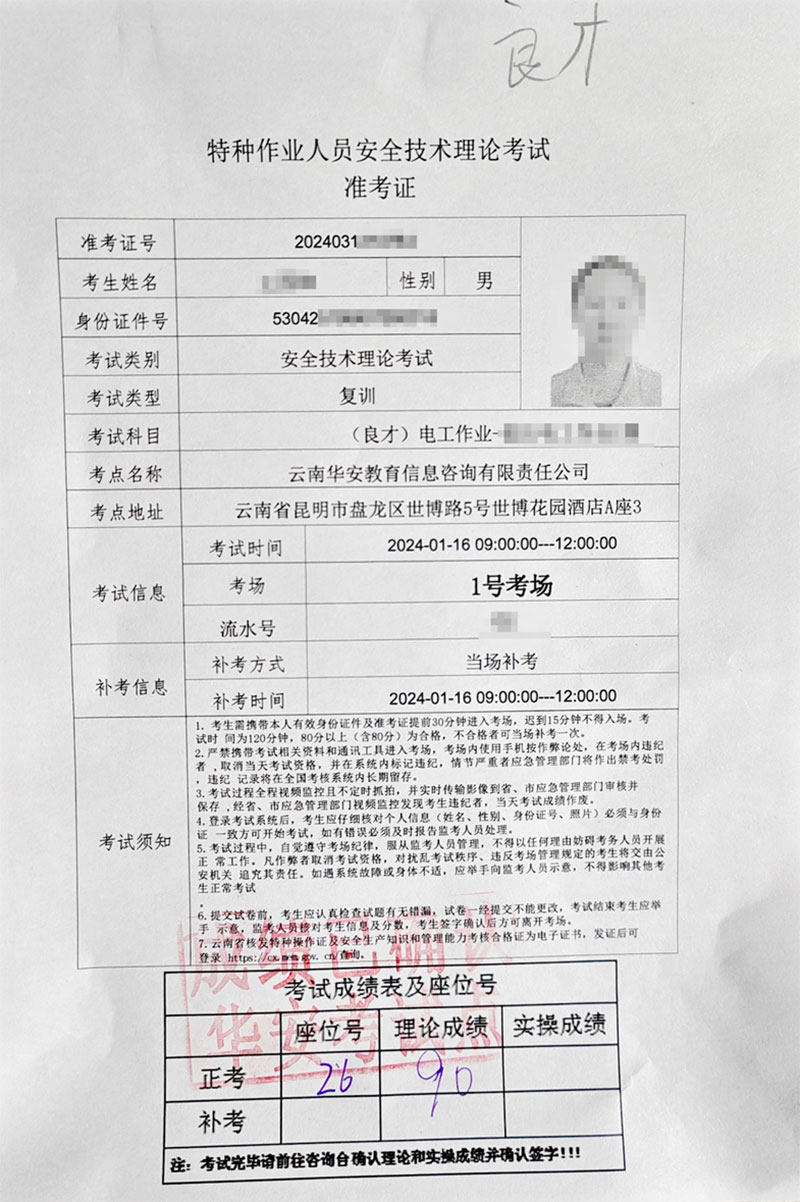 良才
特种作业人员安全技术理论考试
准考证
准考证号 2024031
考生姓名 性别 男
身份证件号 53042
考试类别 安全技术理论考试
考试类型 复训
考试科目 （良才）电工作业-
考点名称 云南华安教育信息咨询有限责任公司
考点地址 云南省昆明市盘龙区世博路5号世博花园酒店A座3
考试信息 考试时间 2024-01-16 09:00:00---12:00:00
考场 1号考场
流水号
补考信息 补考方式 当场补考
补考时间 2024-01-16 09:00:00---12:00:00
考试须知
1. 考生需携带本人有效身份证件及准考证提前30分钟进入考场，迟到15分钟不得入场。考
试时 间为120分钟，80分以上（含80分）为合格，不合格者可当场补考一次。
2. 严禁携带考试相关资料和通讯工具进入考场，考场内使用手机按作弊论处，在考场内违纪
者 ，取消当天考试资格，并在系统内标记违纪，情节严重者应急管理部门将作出禁考处罚
，违纪 记录将在全国考核系统内长期留存。
3. 考试过程全程视频监控且不定时抓拍，并实时传输影像到省、市应急管理部门审核并
保存 ，经省、市应急管理部门视频监控发现考生违纪者，当天考试成绩作废。
4. 登录考试系统后，考生应仔细核对个人信息（姓名、性别、身份证号、照片）必须与身份
证 一致方可开始考试，如有错误必须及时报告监考人员处理。
5. 考试过程中，自觉遵守考场纪律，服从监考人员管理，不得以任何理由妨碍考务人员开展
正 常工作。凡作弊者取消考试资格，对扰乱考试秩序、违反考场管理规定的考生将交由公
安机关 追究其责任。如遇系统故障或身体不适，应举手向监考人员示意，不得影响其他考
生正常考试
。
6. 提交试卷前，考生应认真检查试题有无错漏，试卷一经提交不能更改，考试结束考生应举
手 示意，监考人员核对考生信息及分数，考生签字确认后方可离开考场。
7. 云南省核发特种操作证及安全生产知识和管理能力考核合格证为电子证书，发证后可
登录 https://cx.mem.gov.cn/查询。
成绩已确认
华安考试点
考试成绩表及座位号
座位号 理论成绩 实操成绩
正考 26 90
补考
注：考试完毕请前往咨询台确认理论和实操成绩并确认签字!!!